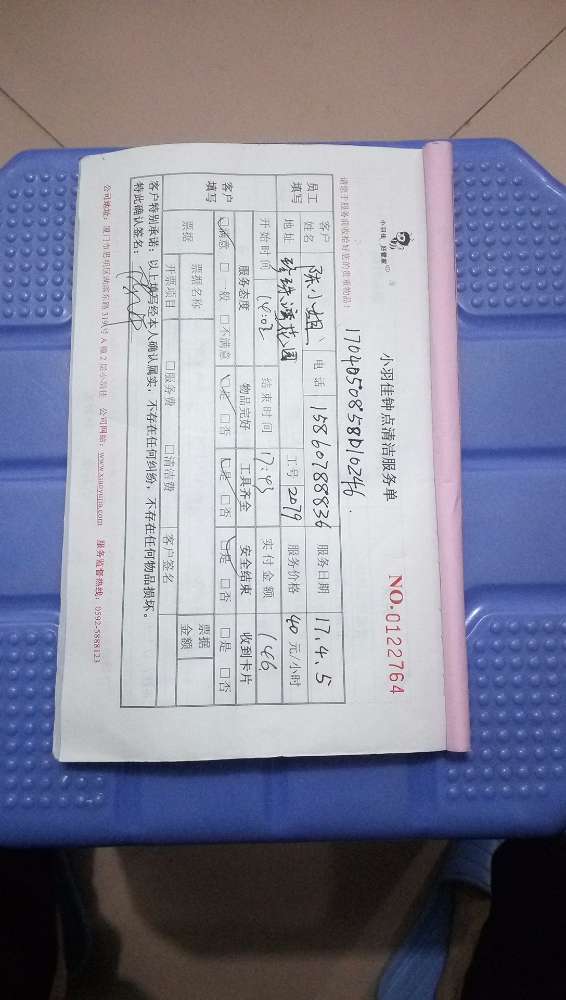 小羽佳 好管家
小羽佳钟点清洁服务单
NO.0122764
1704050858D10246
请您于服务前收拾好您的贵重物品!
员工填写
客户姓名 陈小姐 电话 15860788836 服务日期 17.4.5
地址 珍珠湾花园 工号 2079 服务价格 40元/小时
开始时间 14:02 结束时间 17:43 实付金额 146
客户填写
服务态度 物品完好 工具齐全 安全结束 收到卡片
☑满意 □一般 □不满意 ☑是 □否 ☑是 □否 ☑是 □否 □是 □否
票据 票据名称 票据金额
开票项目 □服务费 □清洁费 客户签名
客户特别承诺:以上填写经本人确认属实,不存在任何纠纷,不存在任何物品损坏。
特此确认签名:
公司网站:www.xiaoyujia.com 服务监督热线:0592-5888123